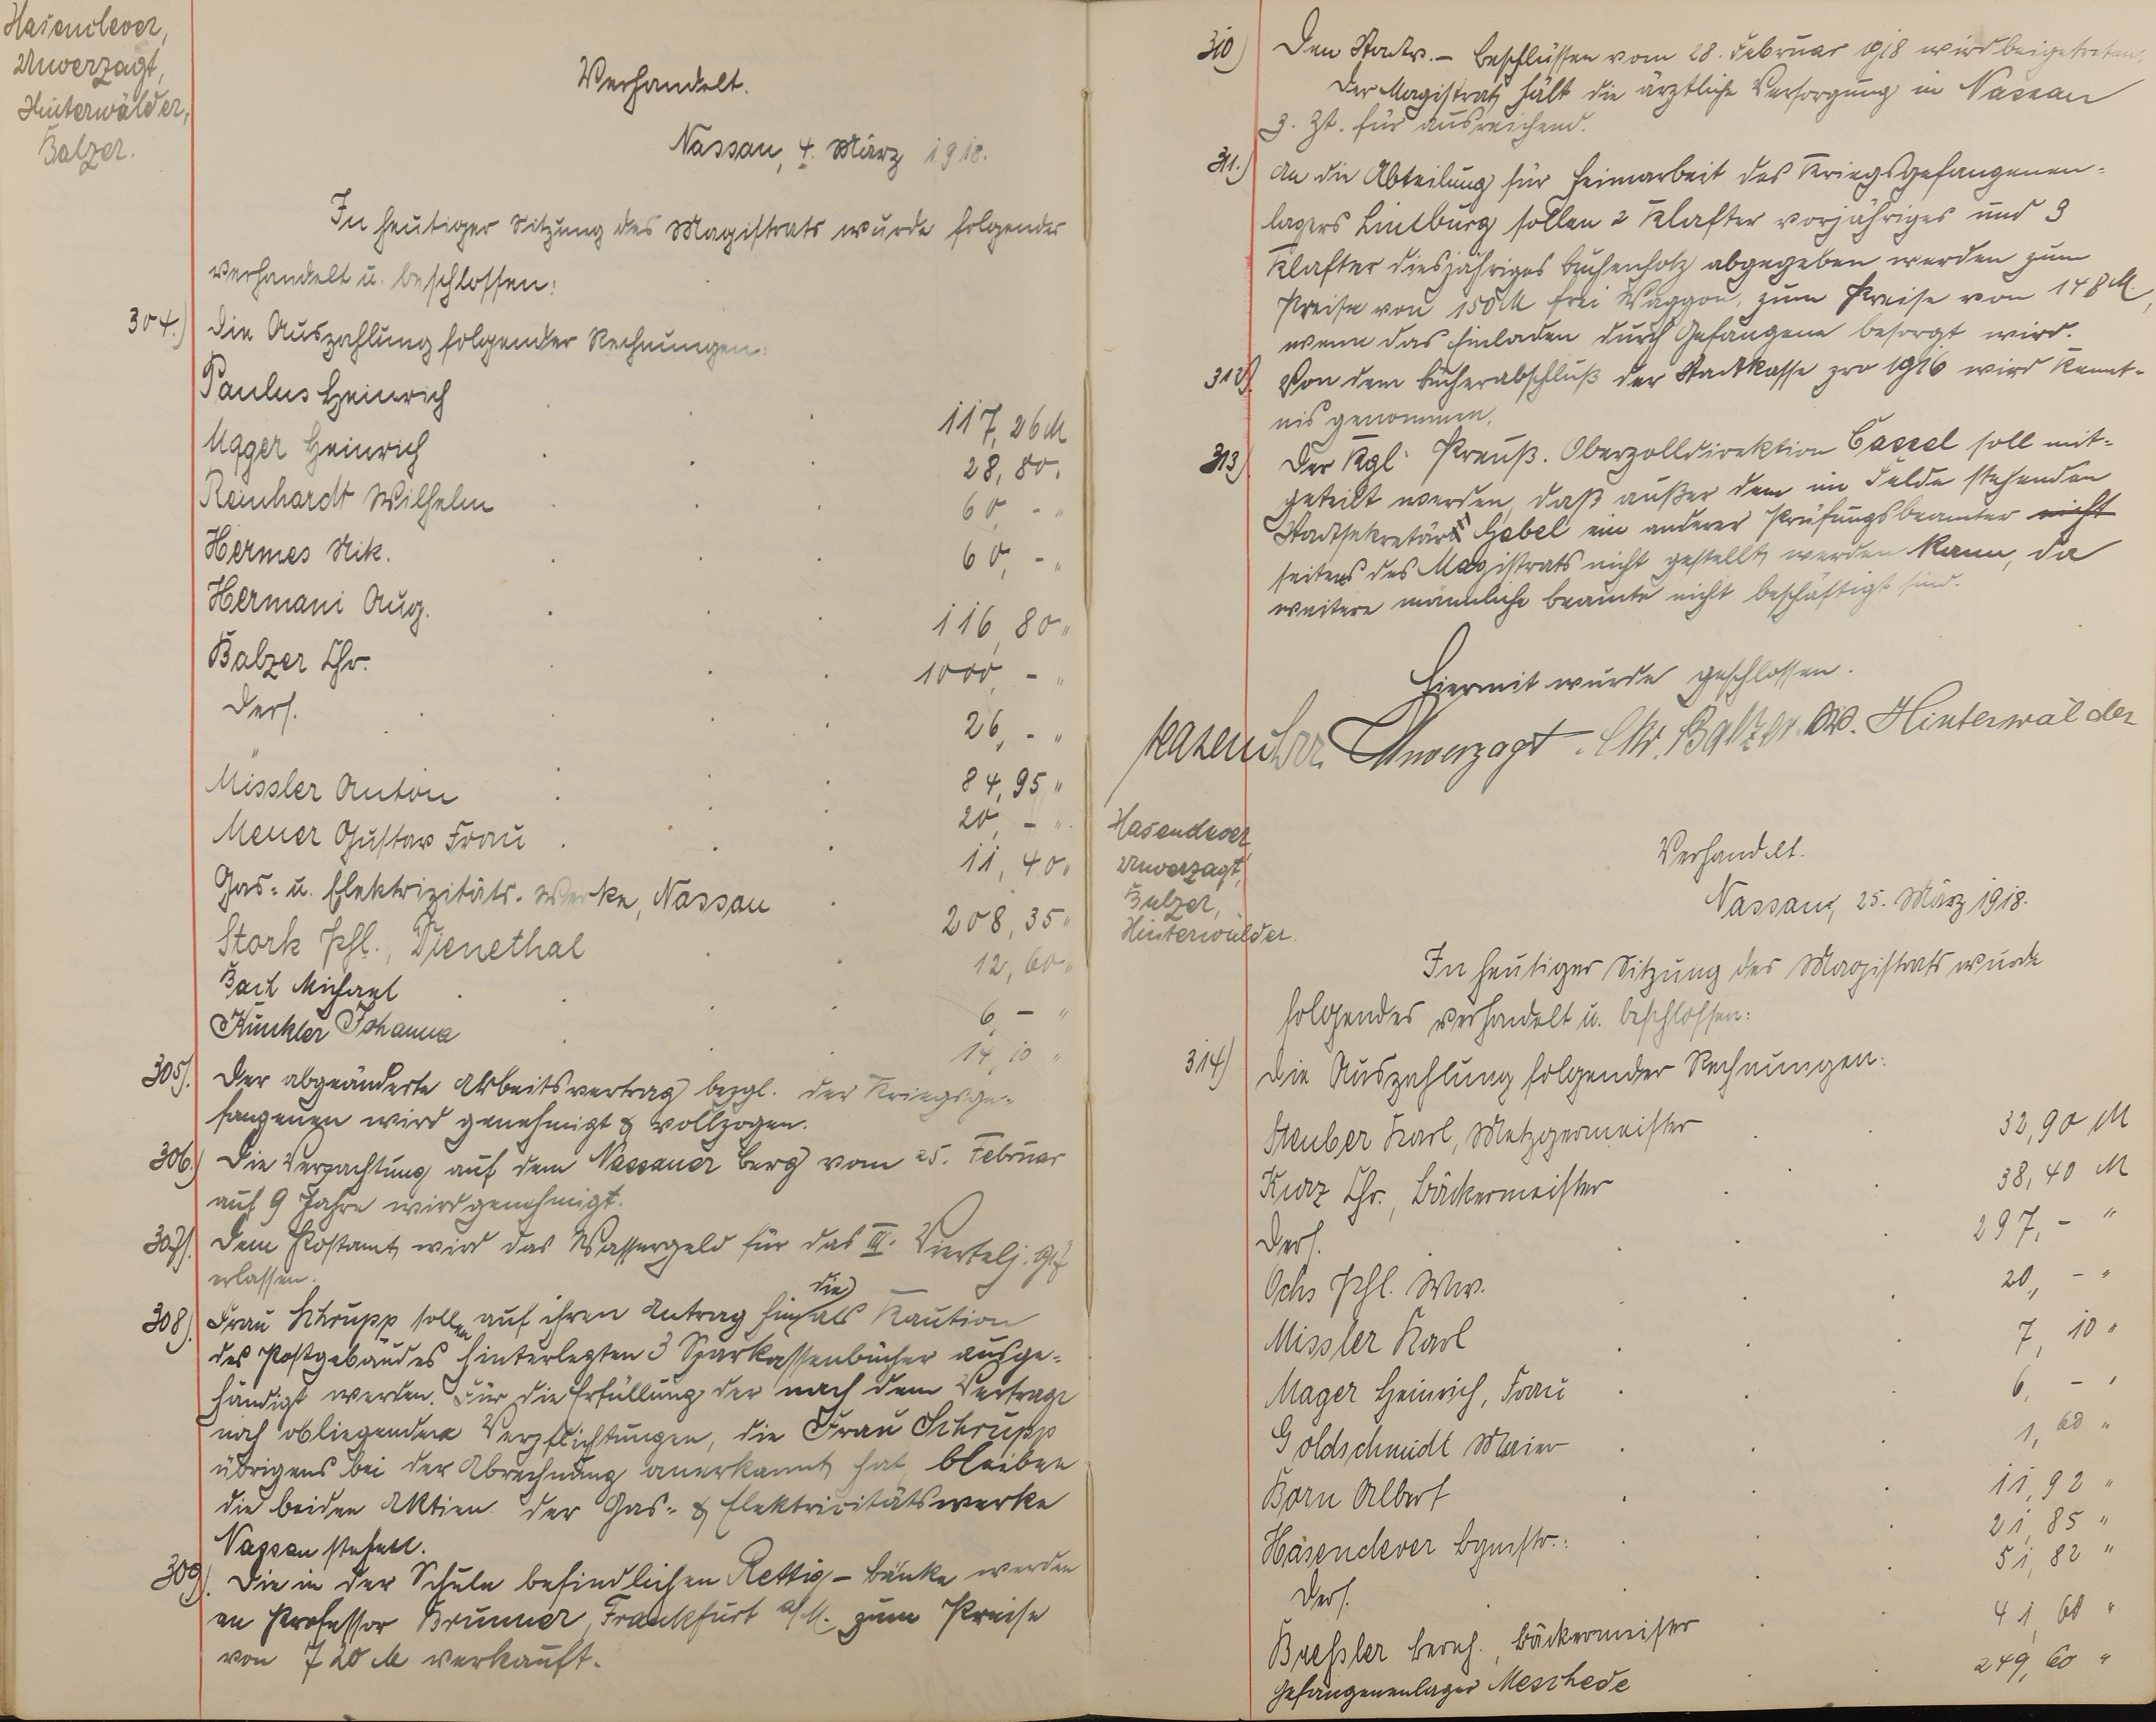 Hasenclever,
Unverzagt,
Hinterwälder,
Balzer.
Verhandelt.
Nassau, 4. März 1918.
In heutiger Sitzung des Magistrats wurde folgendes
verhandelt u. beschlossen:
304.) Die Auszahlung folgender Rechnungen:
Paulus Heinrich . . 117,26 M
Mager Heinrich . . . 28,80 "
Reinhardt Wilhelm . . . 60,- "
Hermes Nik. . . . 60,- "
Hermani Aug. . . . 116,80 "
Balzer Chr. . . . 1000,- "
Ders. . . . . 26,- "
" . . . 84,95 "
Missler Anton . . . 20,- "
Meuer Gustav Frau . . . 11,40 "
Gas- u. Elektrizitäts-Werke, Nassau . 208,35 "
Stork Phl., Dienethal . . 12,60 "
Bail Michael . . . . 6,- "
Kunkler Johanna . . . 14,10 "
305). Der abgeänderte Arbeitsvertrag bezgl. der Kriegsge-
fangenen wird genehmigt & vollzogen.
306.) Die Verpachtung auf dem Nassauer Berg vom 25. Februar
auf 9 Jahre wird genehmigt.
307). Dem Postamt wird das Wassergeld für das III. Viertelj.
erlassen.
308). Frau Schrupp sollen auf ihren Antrag hin die als Kaution
des Postgebäudes hinterlegten 3 Sparkassenbücher ausge-
händigt werden. Für die Erfüllung der nach dem Vertrage
noch obliegenden Verpflichtungen, die Frau Schrupp
übrigens bei der Abrechnung anerkannt hat, bleiben
die beiden Aktien der Gas- & Elektricitätswerke
Nassau stehen.
309). Die in der Schule befindlichen Rettig-Bänke werden
an Professor Brunner, Frankfurt a/M. zum Preise
von 720 M verkauft.
310) Den Stadtv.-Beschlüssen vom 28. Februar 1918 wird beigetreten.
Der Magistrat hält die ärztliche Versorgung in Nassau
z. Zt. für ausreichend.
311.) An die Abteilung für Heimarbeit des Kriegsgefangenen-
lagers Limburg sollen 2 Klafter vorjähriges und 3
Klafter diesjähriges Buchenholz abgegeben werden zum
Preise von 150 M frei Waggon, zum Preise von 148 M,
wenn das Einladen durch Gefangene besorgt wird.
312). Von dem Bücherabschluß der Stadtkasse pro 1916 wird Kennt-
nis genommen.
313) Der Kgl. Preuß. Oberzolldirektion Cassel soll mit-
geteilt werden, daß außer dem im Felde stehenden
Stadtsekretär Hebel ein anderer Prüfungsbeamter nicht
seitens des Magistrats nicht gestellt werden kann, da
weitere männliche Beamte nicht beschäftigt sind.
Hiermit wurde geschlossen.
Hasenclever. Unverzagt. Chr. Balzer. W. Hinterwälder
Hasenclever,
Unverzagt,
Balzer,
Hinterwälder.
Verhandelt.
Nassau, 25. März 1918.
In heutiger Sitzung des Magistrats wurde
folgendes verhandelt u. beschlossen:
314) Die Auszahlung folgender Rechnungen:
Steuber Karl, Metzgermeister . . 32,90 M
Kurz Chr., Bäckermeister . . . 38,40 M
Ders. . . . 297,- "
Ochs Phl. Ww. . . . 20,- "
Missler Karl . . . 7,10 "
Mager Heinrich, Frau . . . 6,- "
Goldschmidt Maier . . . 1,60 "
Born Albert . . . 11,92 "
Hasenclever Bgmstr. . . . 21,85 "
Ders. . . . 51,82 "
Breßler Bernh., Bäckermeister . . 41,60 "
Gefangenenlager Meschede . . 249,60 "